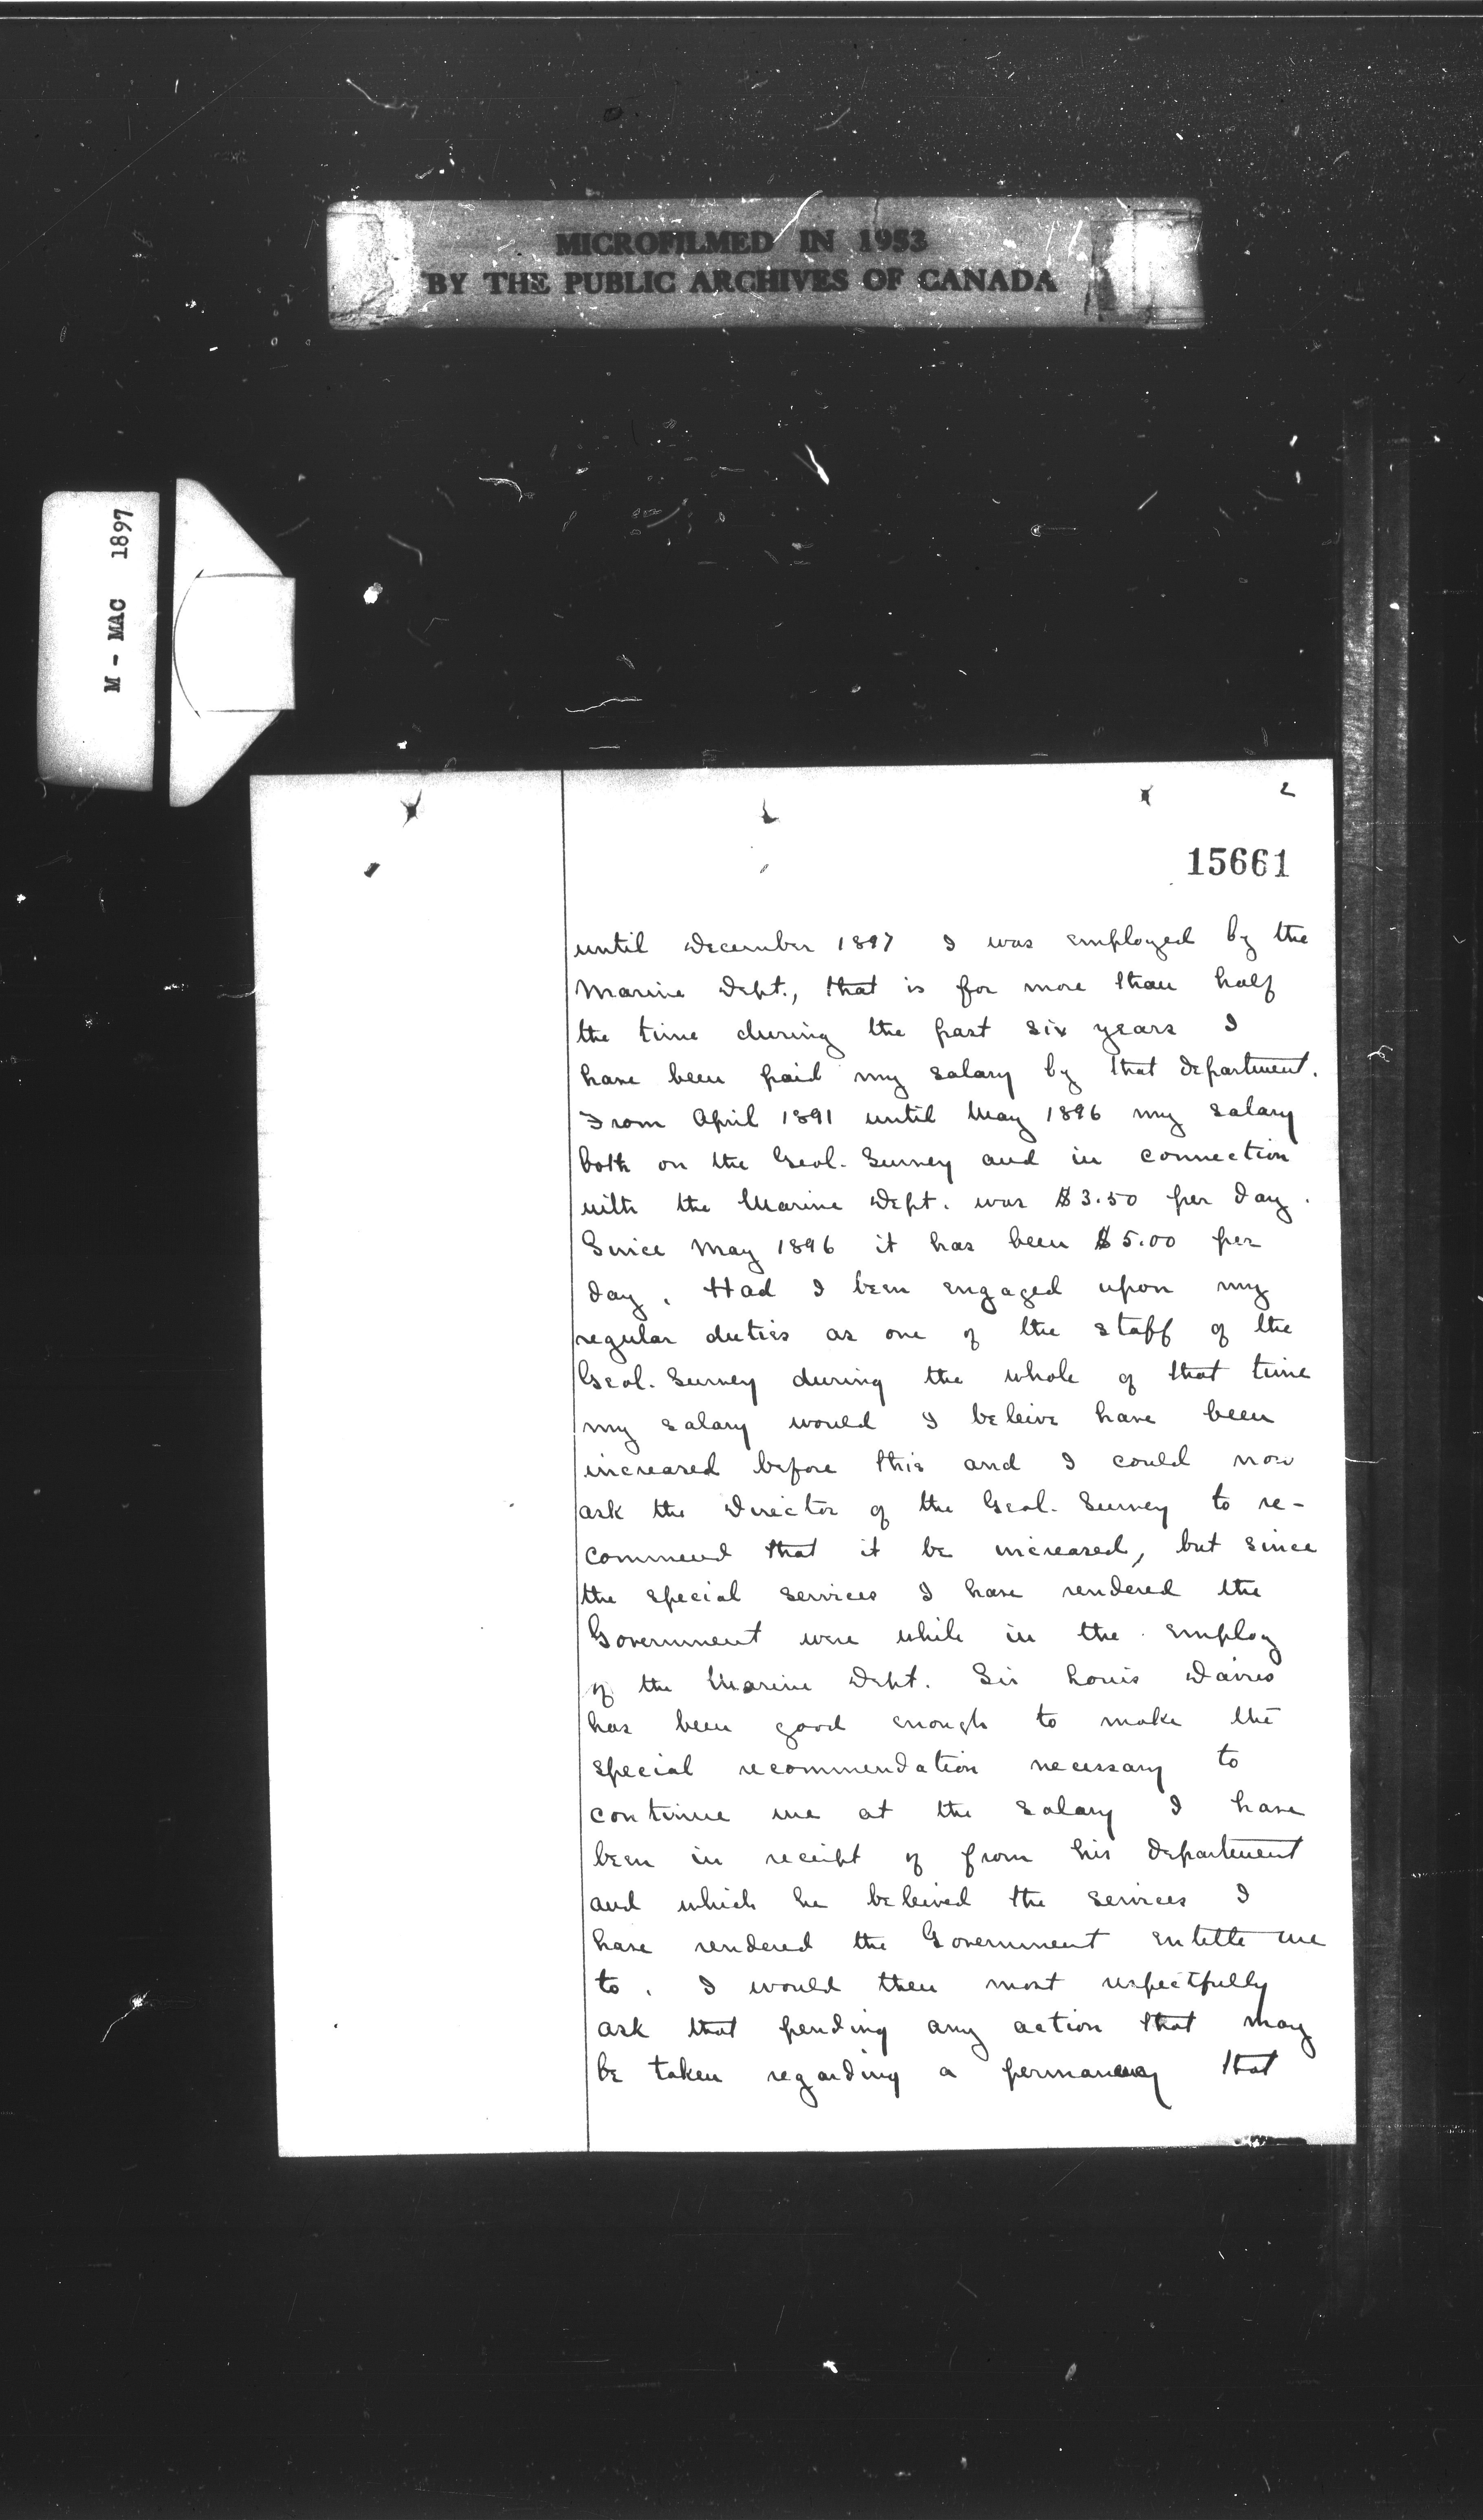 MICROFILMED IN 1953
BY THE PUBLIC ARCHIVES OF CANADA
M - MAC 1897
2
15661
until December 1897 I was employed by the
Marine Dept., that is for more than half
the time during the past six years I
have been paid my salary by that department.
From April 1891 until May 1896 my salary
both on the Geol. Survey and in connection
with the Marine Dept. was $3.50 per day.
Since May 1896 it has been $5.00 per
day. Had I been engaged upon my
regular duties as one of the staff of the
Geol. Survey during the whole of that time
my salary would I beleive have been
increased before this and I could now
ask the Director of the Geol. Survey to re-
commend that it be increased, but since
the special services I have rendered the
Government were while in the employ
of the Marine Dept. Sir Louis Davies
has been good enough to make the
special recommendation necessary to
continue me at the salary I have
been in receipt of from his department
and which he beleived the services I
have rendered the Government entitle me
to. I would then most respectfully
ask that pending any action that may
be taken regarding a permanency that